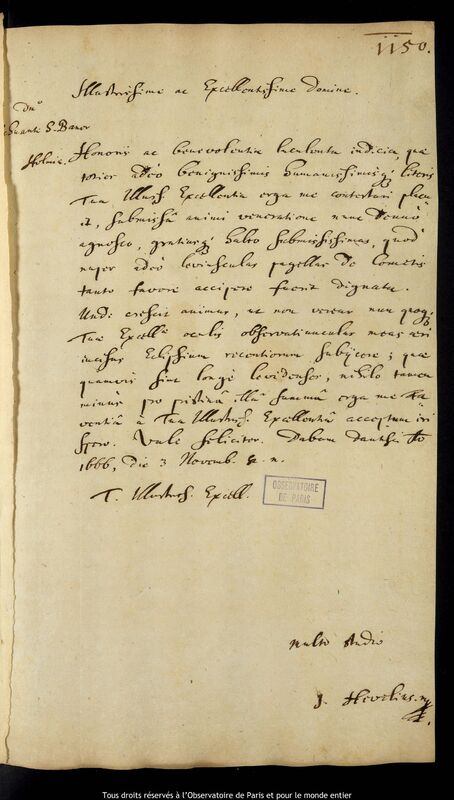 1150.
Illustrissime ac Excellentissime Domine.
Dno
Suante S. Baner
Holmiæ.
Honoris ac benevolentiæ luculenta indicia, quæ
toties adeò benignissimis humanissimisq; literis
Tua Illustriss. Excellentia erga me contestari placu
it, submissâ animi veneratione nunc denuò
agnosco, gratiasq; habeo submississimas, quod
nuper adeò levisculas pagellas de Cometis
tanto favore accipere fuerit dignata.
Unde crescit animus, ut non verear nunc quoq;
Tuæ Excell. oculis observatiunculas meas æri
incisas Eclipsium recentiorum subijcere; quæ
quamvis sint longè levidenses, nihilo tamen
minùs pro pristina illâ summâ erga me fa
ventiâ à Tua Illustriss. Excellentiâ acceptum iri
spero. Vale feliciter. Dabam Dantisci Ao
1666, die 3 Novemb. s. n.
T. Illustriss. Excell.
OBSERVATOIRE
DE PARIS
multo studio
J. Hevelius. mp
Tous droits réservés à l'Observatoire de Paris et pour le monde entier